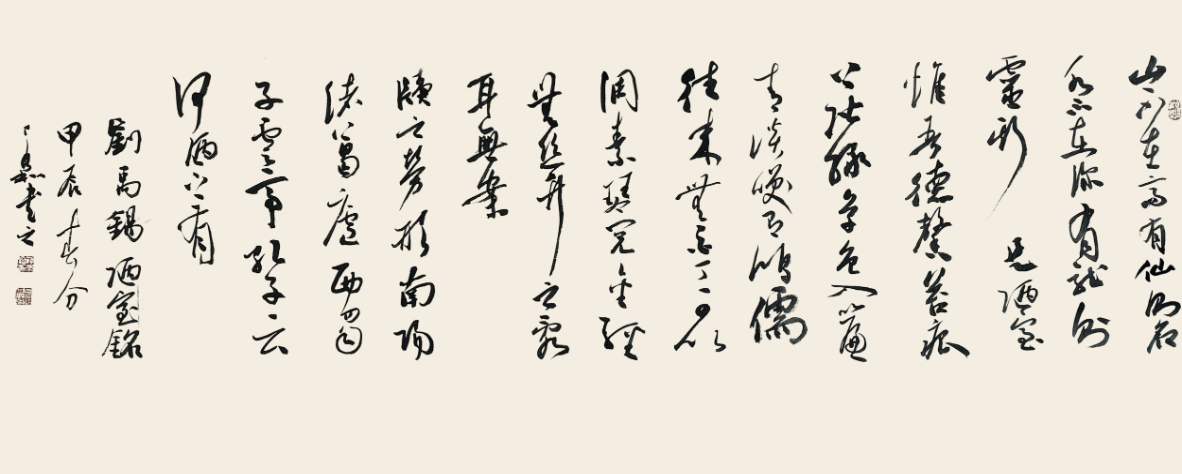 山不在高有仙則名
水不在深有龍則
靈斯是陋室
惟吾德馨苔痕
上階綠草色入簾
青談笑有鴻儒
往来無白丁可以
調素琴閱金經
無絲竹之亂
耳無案
牘之勞形南陽
諸葛廬西蜀
子雲亭孔子云
何陋之有
劉禹錫陋室銘
甲辰春分
書之